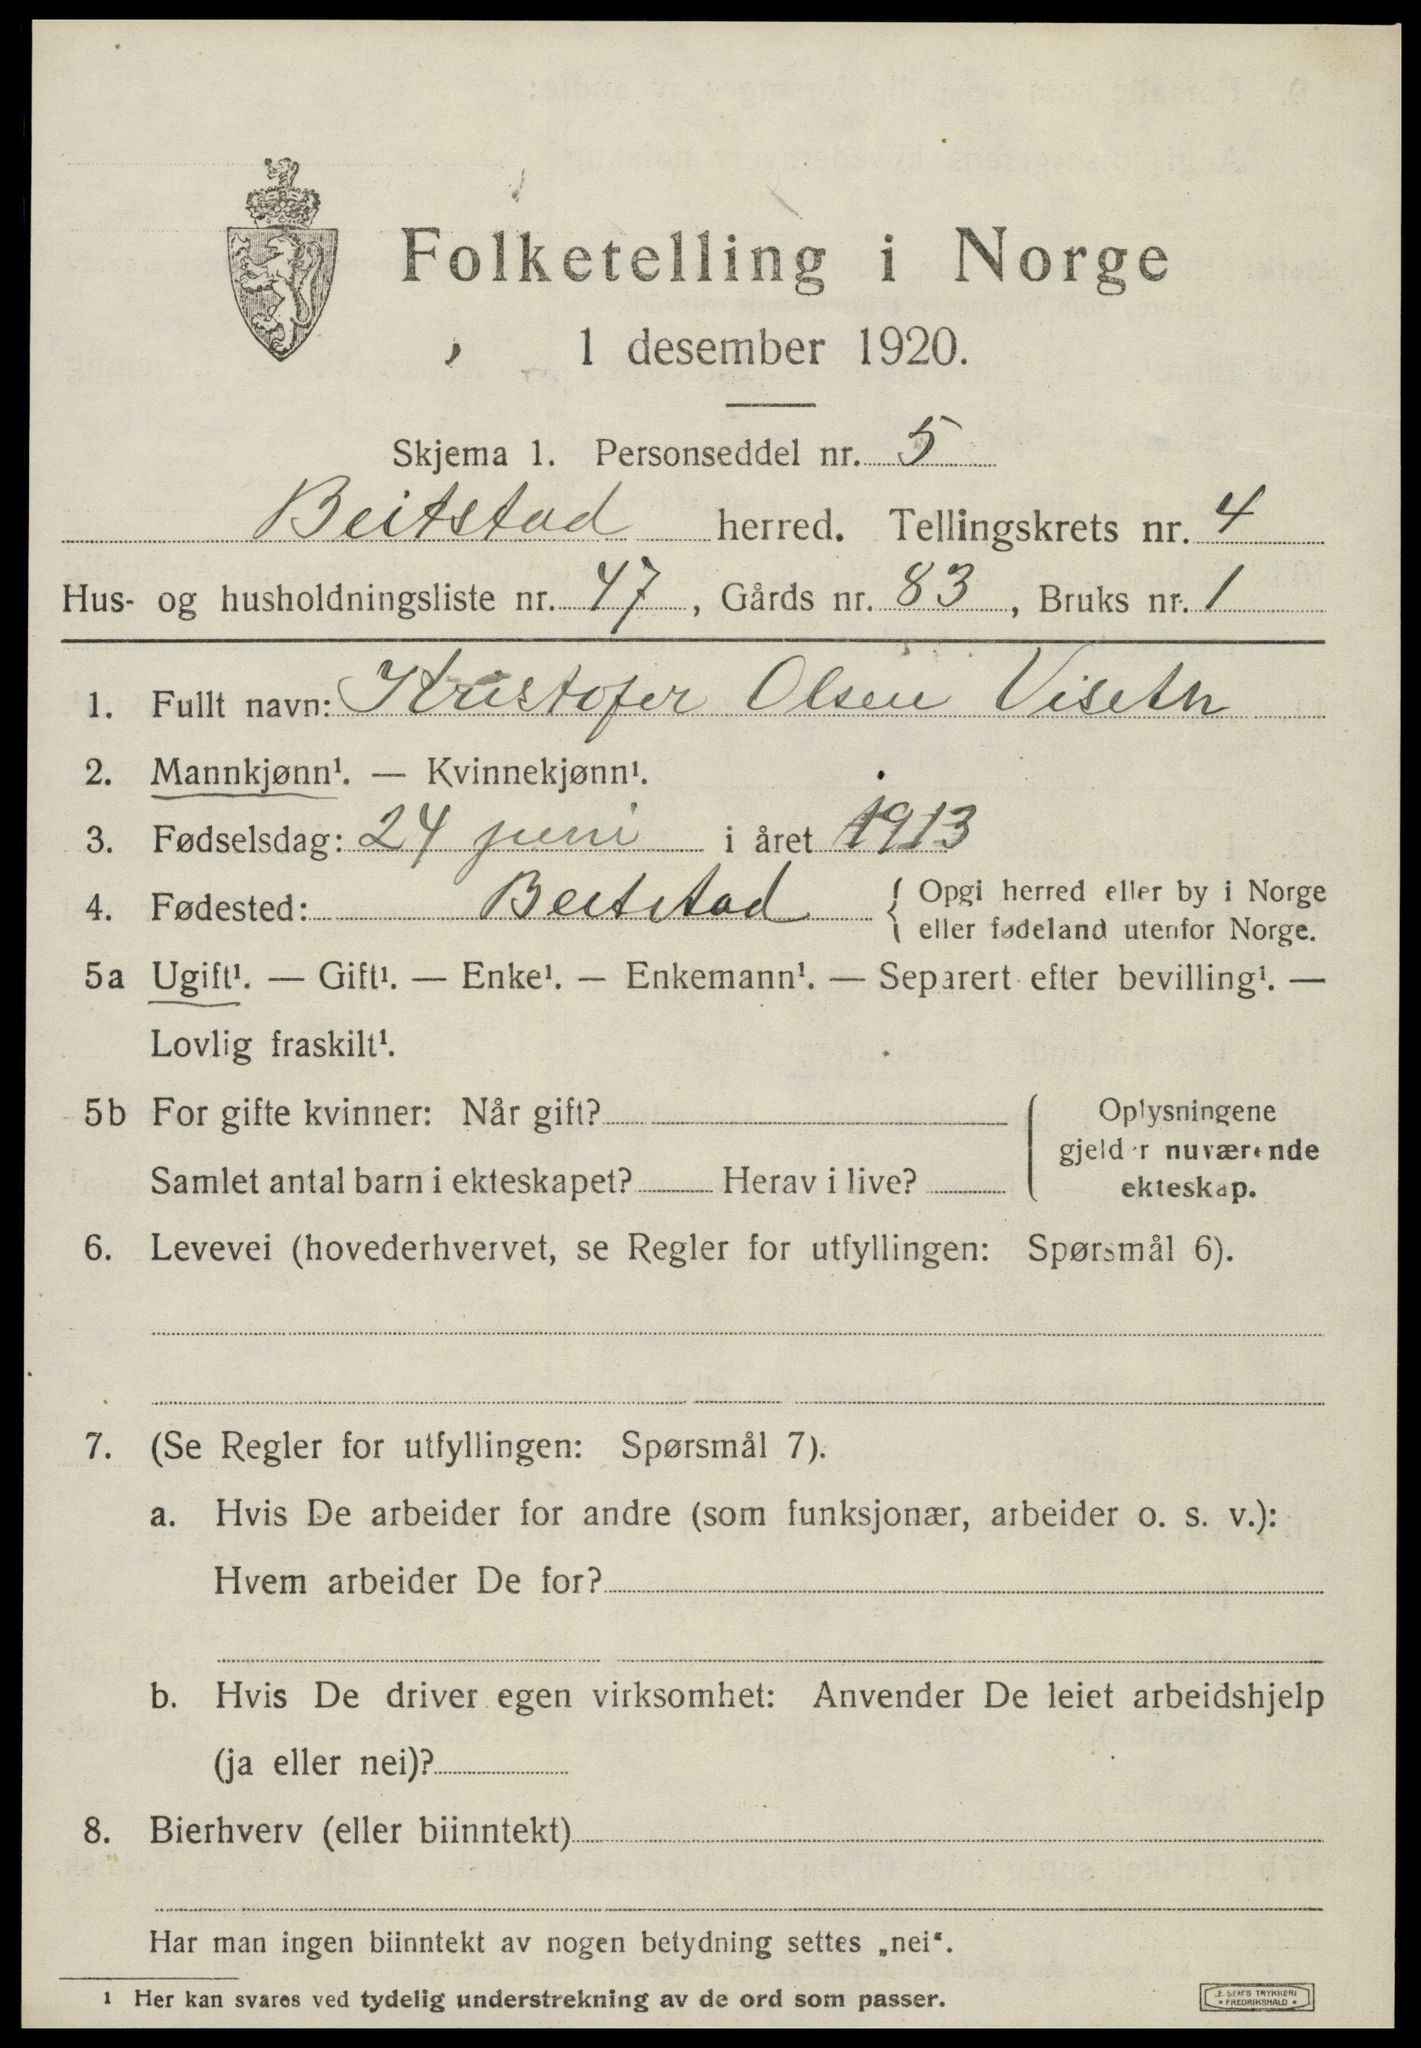 Folketelling i Norge
1 desember 1920.
Skjema 1. Personseddel nr. 5
Beitstad herred. Tellingskrets nr. 4
Hus- og husholdningsliste nr. 47, Gårds nr. 83, Bruks nr. 1
1. Fullt navn: Kristofer Olsen Viseth
2. Mannkjønn¹. — Kvinnekjønn¹.
3. Fødselsdag: 24 juni i året 1913
4. Fødested: Beitstad { Opgi herred eller by i Norge
eller fødeland utenfor Norge.
5a Ugift¹. — Gift¹. — Enke¹. — Enkemann¹. — Separert efter bevilling¹. —
Lovlig fraskilt¹.
5b For gifte kvinner: Når gift?
Samlet antal barn i ekteskapet? Herav i live?
Oplysningene
gjelder nuværende
ekteskap.
6. Levevei (hovederhvervet, se Regler for utfyllingen: Spørsmål 6).
7. (Se Regler for utfyllingen: Spørsmål 7).
a. Hvis De arbeider for andre (som funksjonær, arbeider o. s. v.):
Hvem arbeider De for?
b. Hvis De driver egen virksomhet: Anvender De leiet arbeidshjelp
(ja eller nei)?
8. Bierhverv (eller biinntekt)
Har man ingen biinntekt av nogen betydning settes „nei“.
¹ Her kan svares ved tydelig understrekning av de ord som passer.
E. SEM'S TRYKKERI
• FREDRIKSHALD •